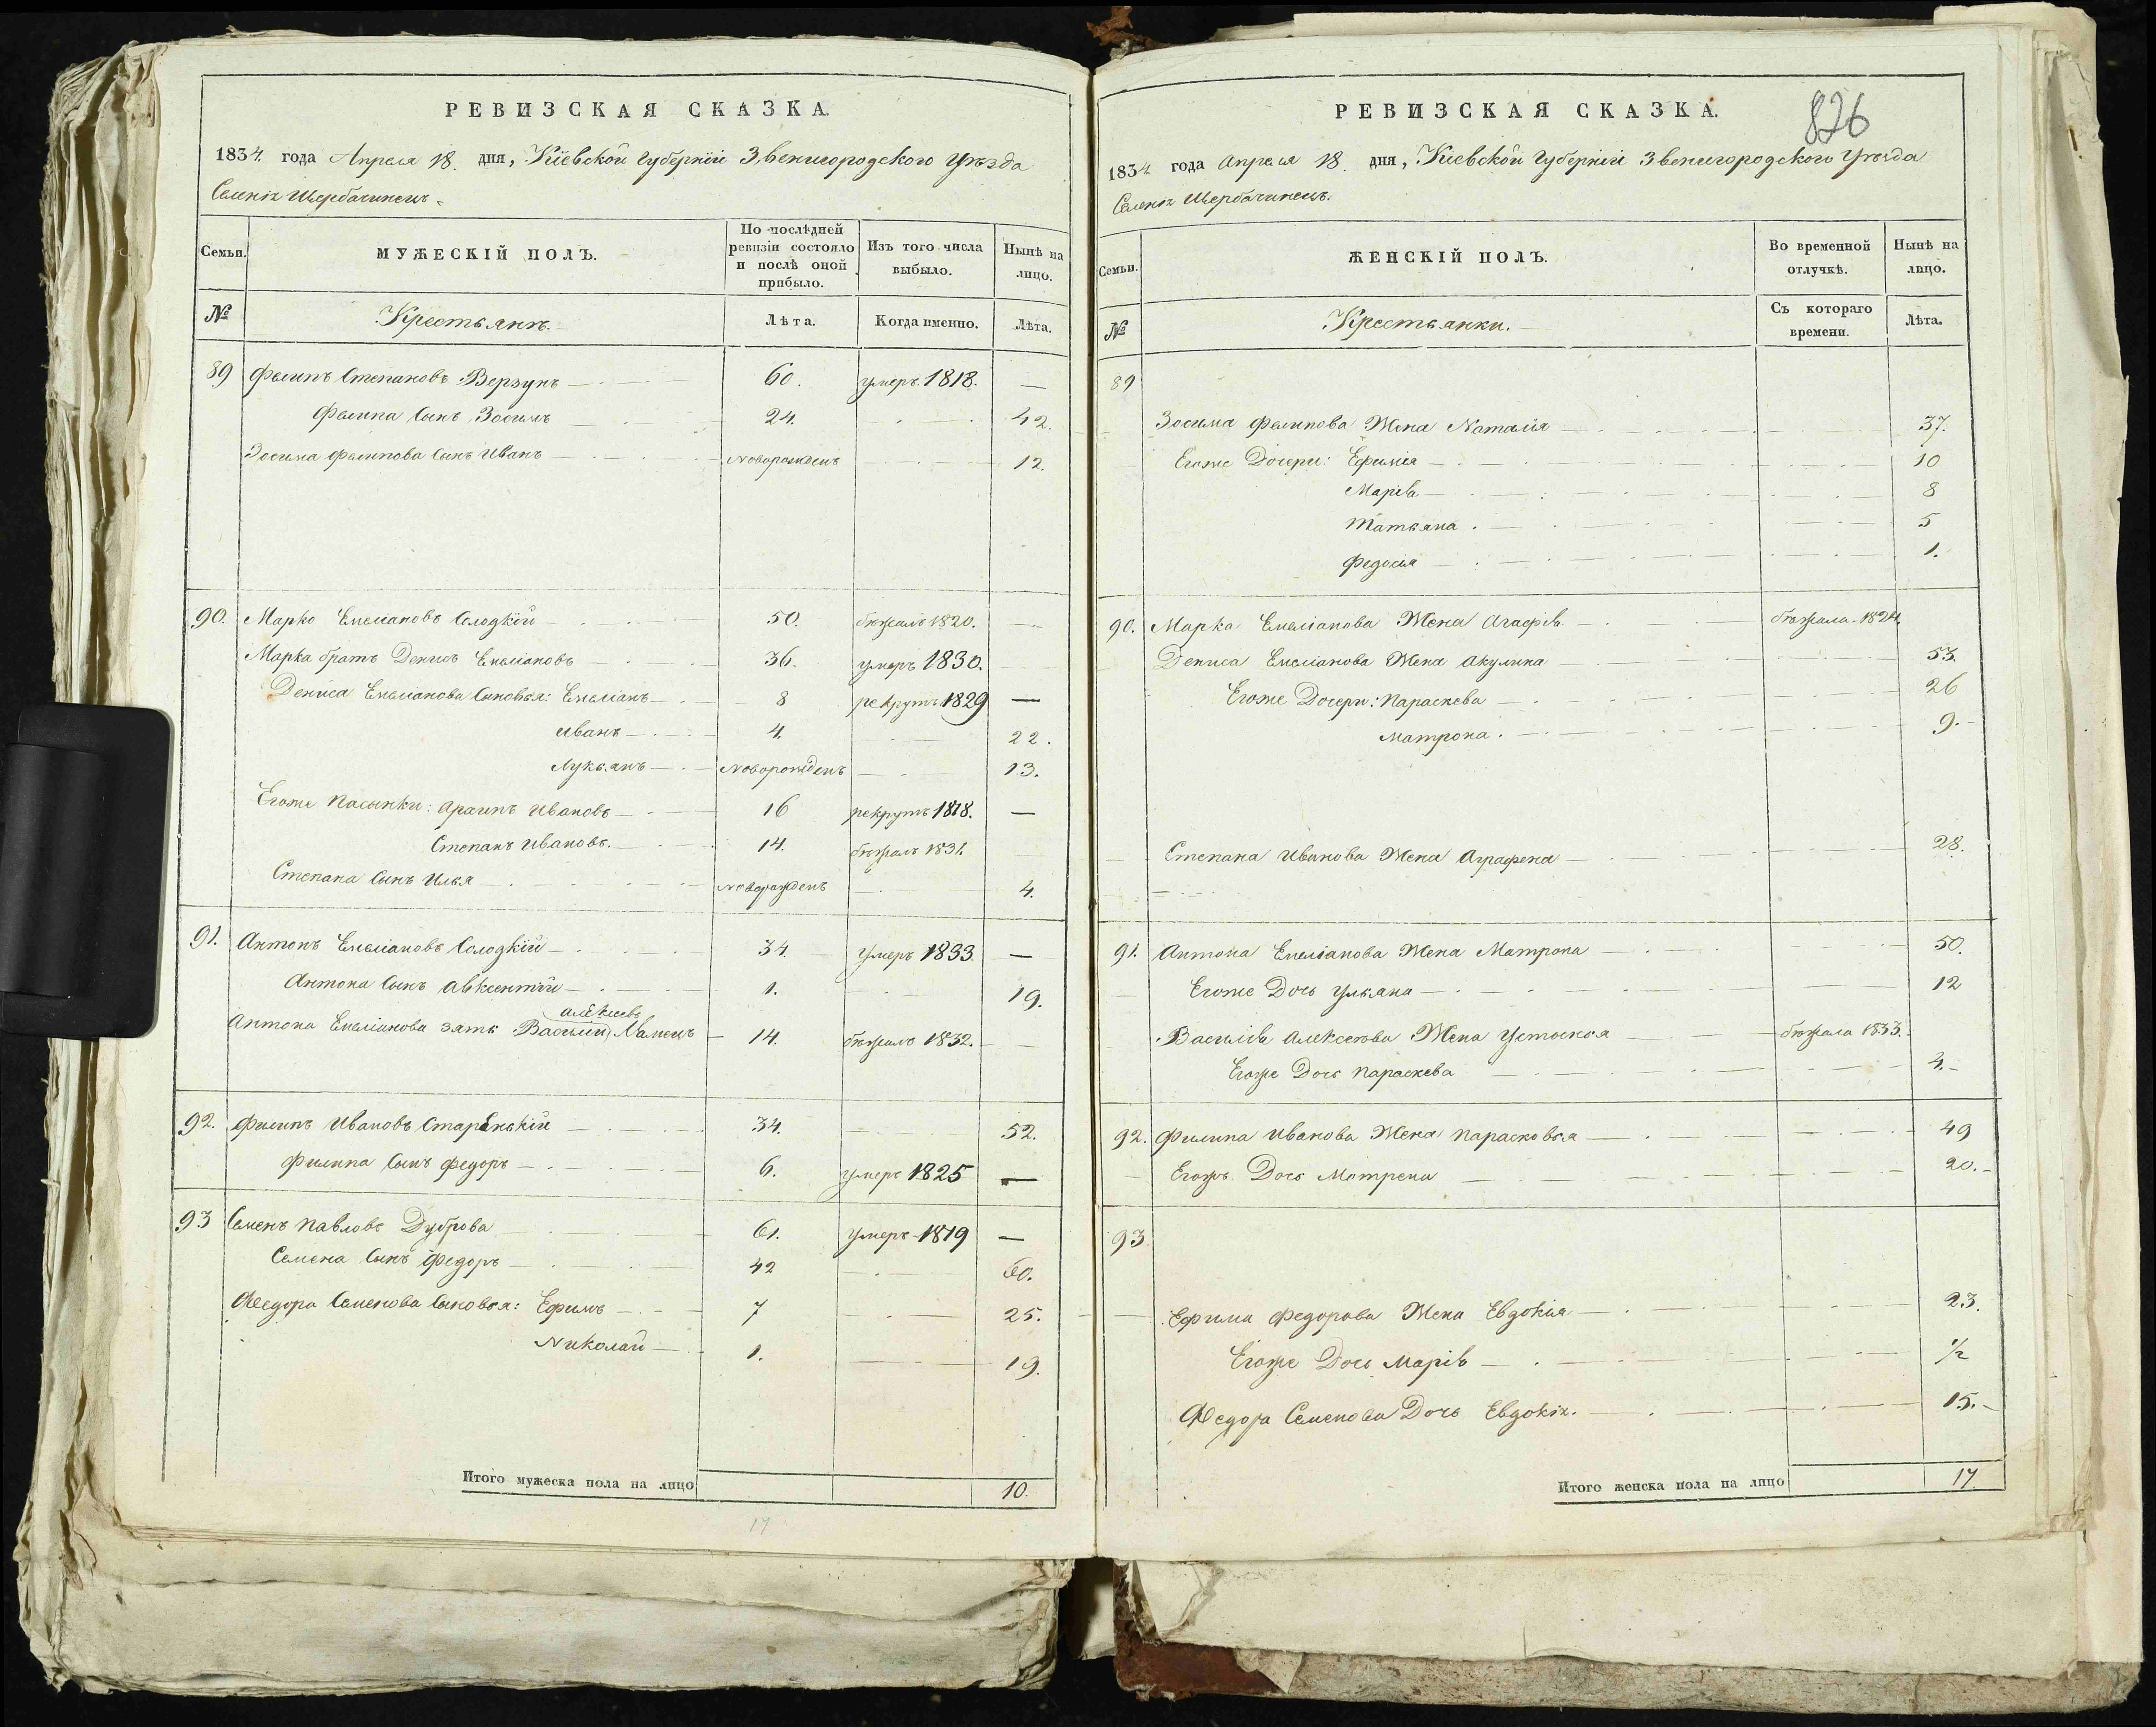 РЕВИЗСКАЯ СКАЗКА.
1834. года Апреля 18. дня, Кіевской Губерніи Звенигородского Уѣзда
Селенія Щербачинецъ.
Семьи.
МУЖЕСКІЙ ПОЛЪ.
По послѣдней ревизіи состояло и послѣ оной прибыло.
Изъ того числа выбыло.
Нынѣ на лицо.
№
Крестьянъ.
Лѣта.
Когда именно.
Лѣта.
89 Филипъ Степановъ Верзунъ 60. умеръ 1818. —
Филипа Сынъ Зосимъ 24. 42.
Зосима Филипова Сынъ Иванъ Новорожденъ 12.
90. Марко Емеліановъ Солодкій 50. бѣжалъ 1820. —
Марка братъ Денисъ Емеліановъ 36. умеръ 1830. —
Дениса Емеліанова Сыновья: Емеліанъ 8 рекрутъ 1829 —
Иванъ 4. 22.
Лукьянъ Новорожденъ 13.
Егоже Пасынки: Архипъ Ивановъ 16 рекрутъ 1818. —
Степанъ Ивановъ. 14. бѣжалъ 1831.
Степана Сынъ Илья Новорожденъ 4.
91. Антонъ Емеліановъ Солодкій 34. Умеръ 1833. —
Антона Сынъ Авксентій 1. 19.
Алексѣевъ
Антона Емеліанова зять Василій 14. бѣжалъ 1832. —
92. Филипъ Ивановъ Старенькій 34. 52.
Филипа Сынъ Федоръ 6. умеръ 1825 —
93 Семенъ Павловъ Дуброва 61. умеръ 1819 —
Семена Сынъ Федоръ 42 60.
Федора Семенова Сыновья: Ефимъ 7 25.
Николай 1. 19.
Итого мужеска пола на лицо 10.
17
РЕВИЗСКАЯ СКАЗКА.
826
1834 года Апреля 18. дня, Кіевской Губерніи Звенигородского Уѣзда
Селенія Щербачинецъ.
Семьи.
ЖЕНСКІЙ ПОЛЪ.
Во временной отлучкѣ.
Нынѣ на лицо.
№
Крестьянки.
Съ котораго времени.
Лѣта.
89
Зосима Филипова Жена Наталія 37.
Егоже Дочери: Ефимія 10
Марія 8
Татьяна. 5
Федосія 1.
90. Марка Емеліанова Жена Агафія бѣжала 1824.
Дениса Емеліанова Жена Акулина 53.
Егоже Дочери: Параскева 26
Матрона. 9.
Степана Иванова Жена Аграфена 28.
91. Антона Емеліанова Жена Матрона 50.
Егоже Дочь Ульяна 12
Василія Алексеева Жена Устинья бѣжала 1833.
Егоже Дочь Параскева 4.
92. Филипа Иванова Жена Парасковья 49
Егожъ Дочь Матрена 20.
93
Ефима Федорова Жена Евдокія 23.
Егоже Дочь Марія 1/2
Федора Семенова Дочь Евдокія. 15.
Итого женска пола на лицо 17.